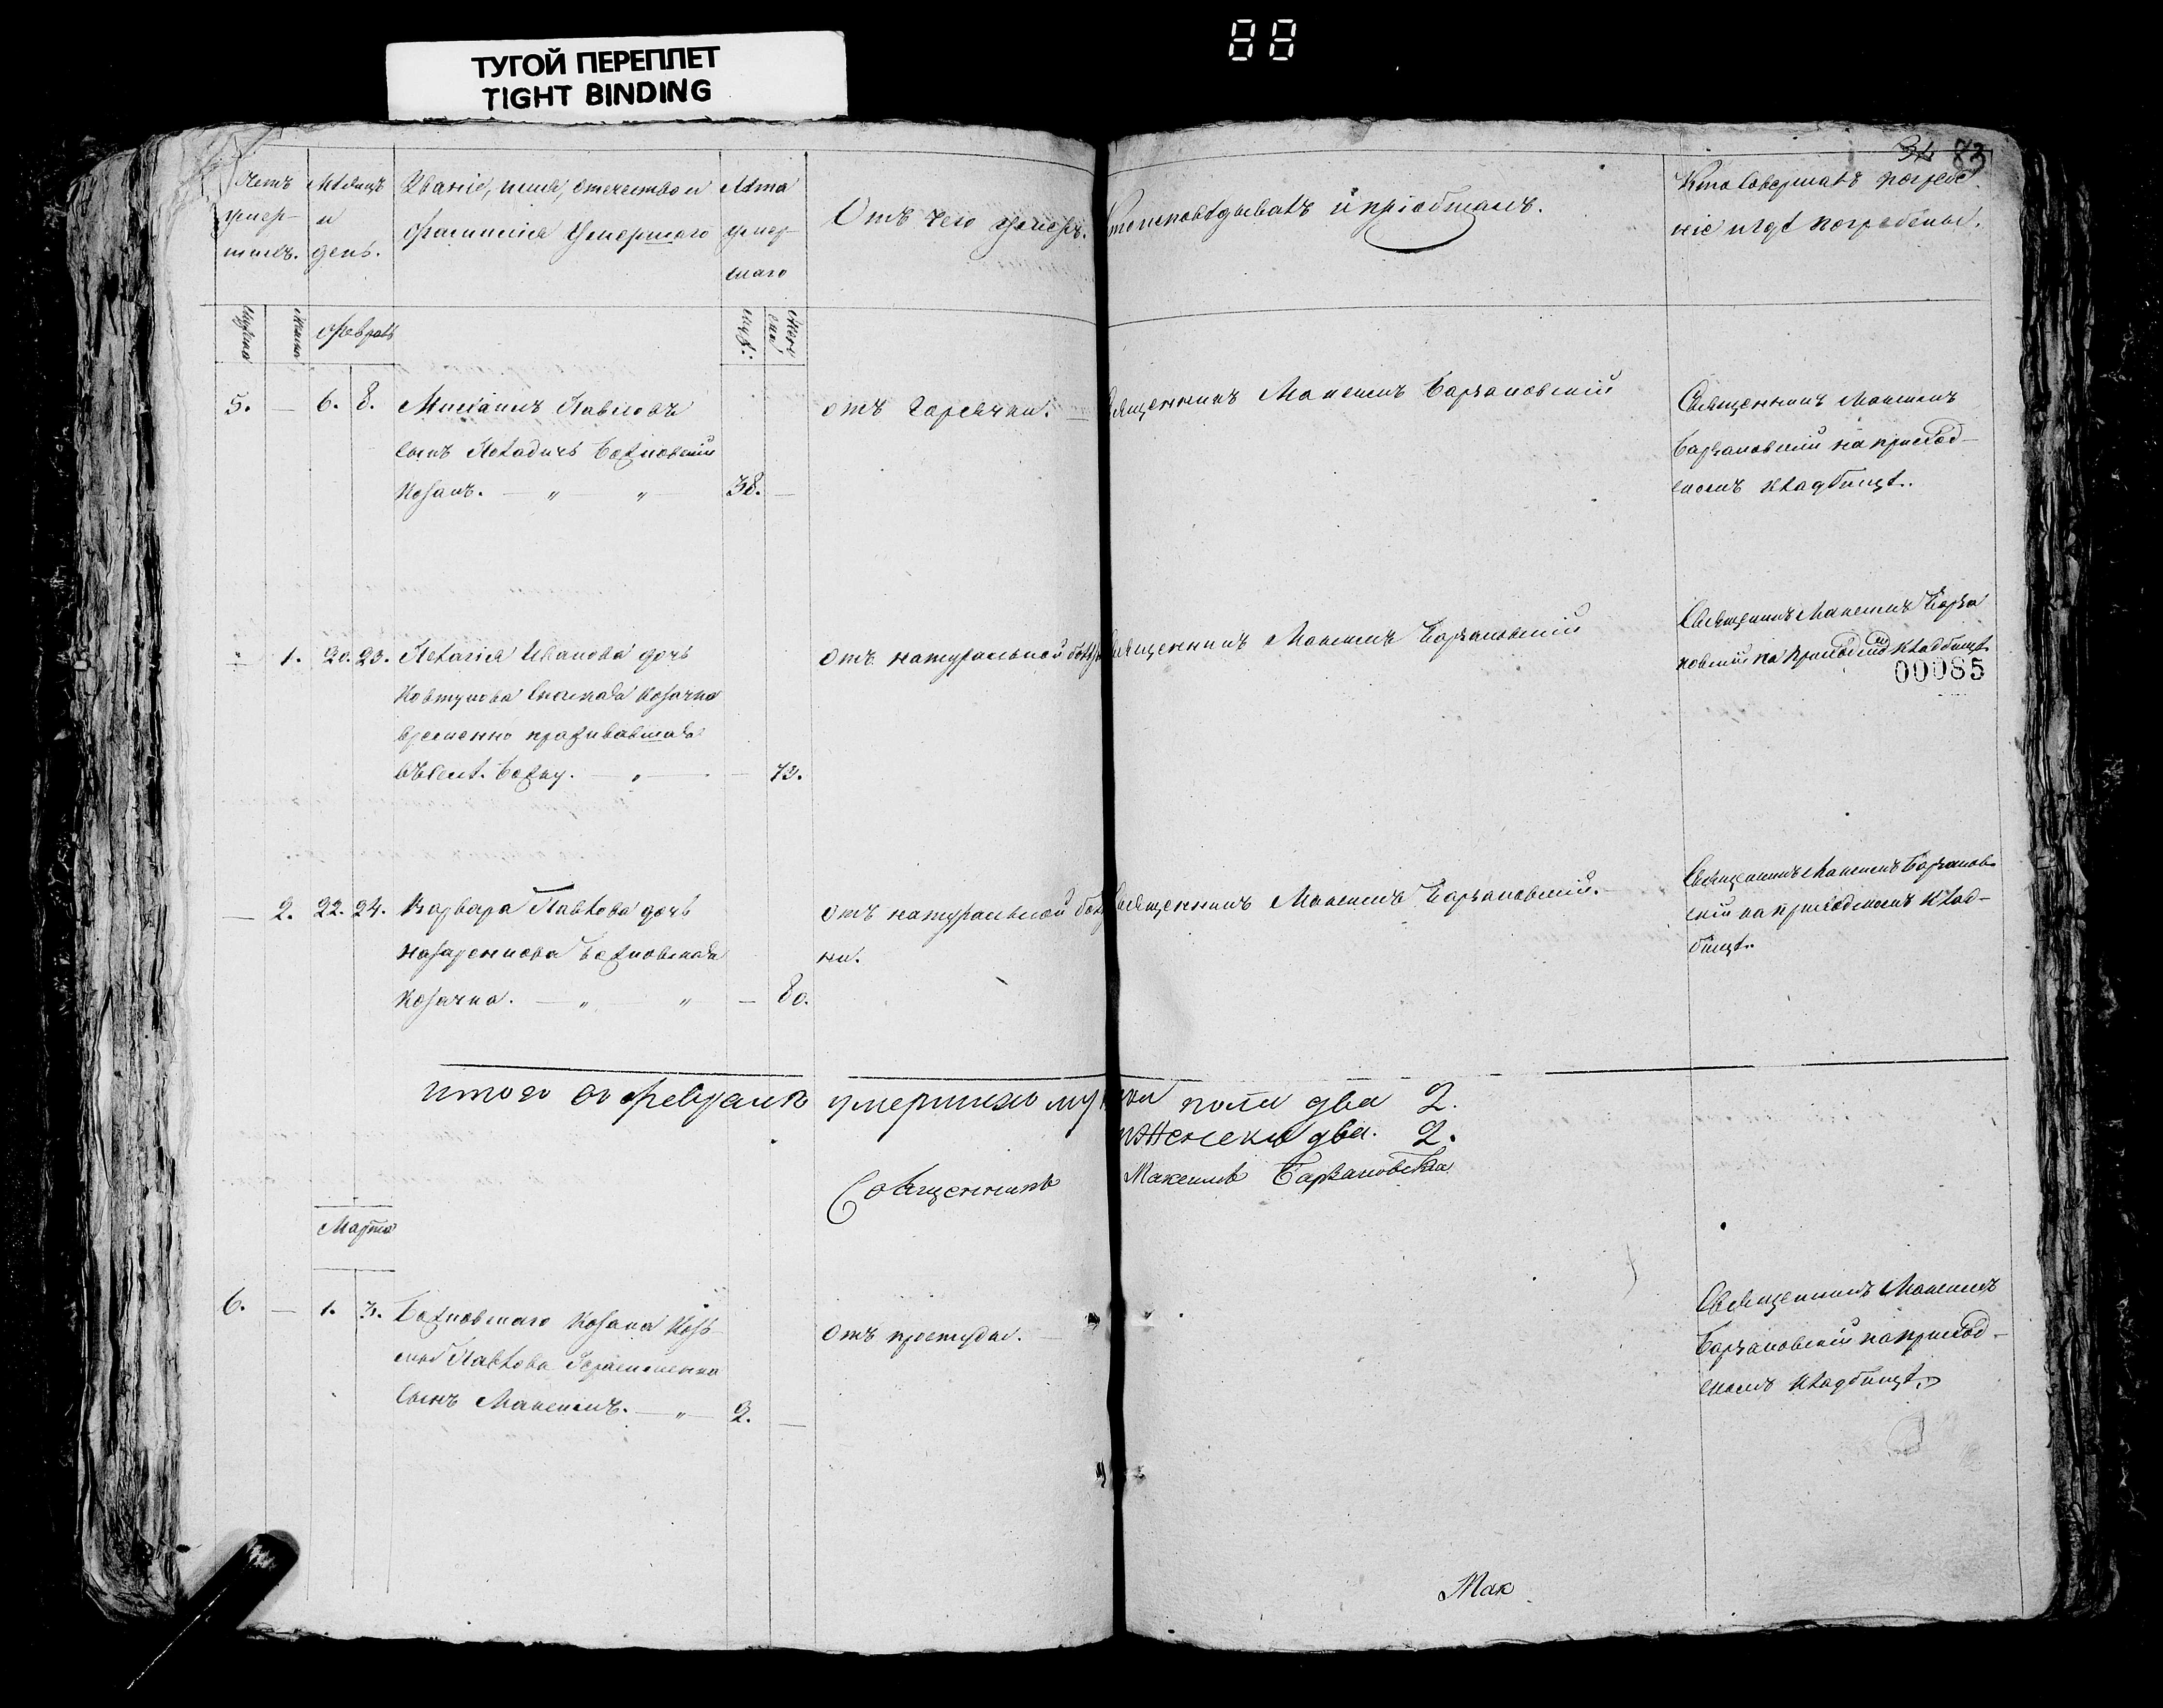 88
ТУГОЙ ПЕРЕПЛЕТ
TIGHT BINDING
34 83
Счетъ умер-шихъ.
Мѣсяцъ и день.
Званіе, имя, отечество и фамилія Умершаго
Лѣта умер шаго
Отъ чего умеръ.
Кто исповѣдывалъ и пріобщалъ.
Кто совершалъ погребе-
ніе и гдѣ погребены.
Мужска
Женска
Февраль
Муж:
Жен ска
5. — 6. 8.
сынъ
Козакъ. — „ — „ — 38. —
отъ Горячки. —
Священникъ Максимъ Барзаковскій
Священникъ Максимъ
Барзаковскій на приход-
скомъ кладбищѣ.
1. 20. 23. Пелагія Иванова дочь
Ковтунова Козачка
временно проживавшая
въ —
отъ натуральной
Священникъ Максимъ Барзаковскій
Священникъ Максимъ Барза
ковскій на приходском кладбищѣ
00085
— 2. 22. 24. Варвара Павлова дочь
Козачка. — „ — „ — 80.
отъ натуральной
ки.
Священникъ Максимъ Барзаковскій.
Священникъ Максимъ Барзаков-
скій на приходскомъ клад-
бищѣ.
Итого въ феврале умершихъ мужска пола два 2.
женска два. 2.
Священникъ Максимъ Барзаковскій
Марта
6. — 1. 3. Козака Кось-
мы Павлова
сынъ Максимъ. — „ — 2. —
отъ простуды. —
Священникъ Максимъ
Барзаковскій на приход-
скомъ кладбищѣ.
Мак